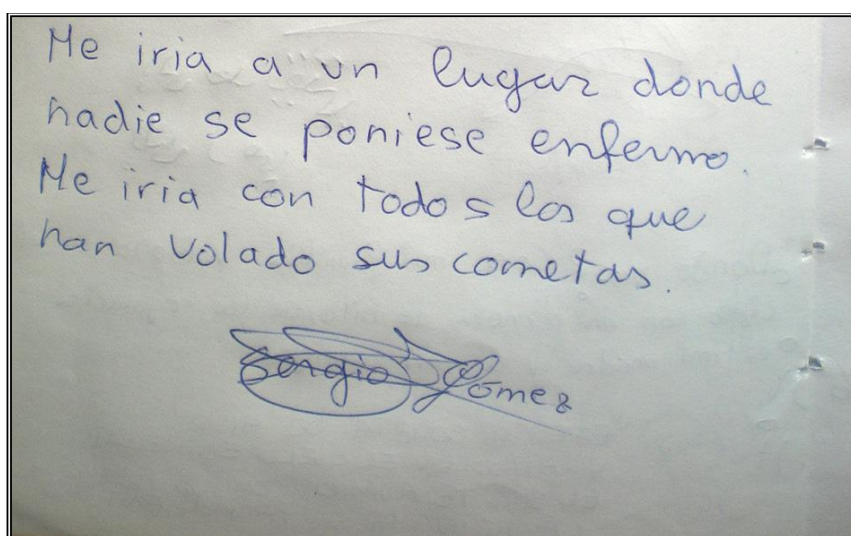 Me iria a un lugar donde
nadie se poniese enfermo.
Me iria con todos los que
han volado sus cometas.
Sergio Gómez